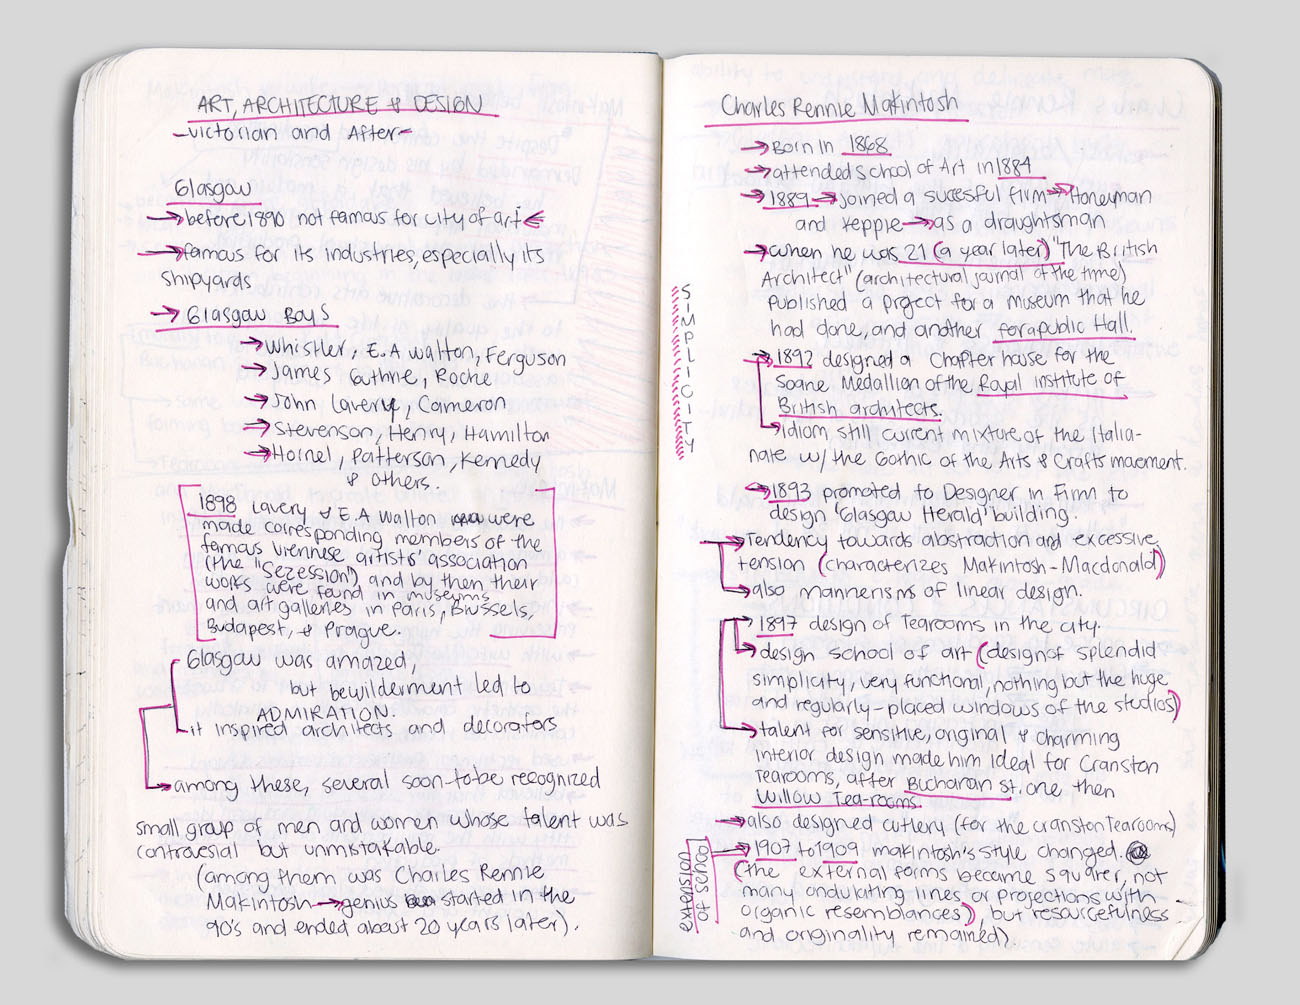 ART, ARCHITECTURE & DESIGN
-Victorian and After-
Glasgow
→ before 1890 not famous for city of art ←
→ famous for its industries, especially its
shipyards
→ Glasgow Boys
→ Whistler, E.A Walton, Ferguson
→ James Guthrie, Roche
→ John Lavery, Cameron
→ Stevenson, Henry, Hamilton
→ Hornel, Patterson, Kennedy
& others.
1898 Lavery & E.A Walton were
made corresponding members of the
famous viennese artists association
(the "Sezession") and by then their
works were found in museums
and art galleries in Paris, Brussels,
Budapest, & Prague.
Glasgow was amazed,
but bewilderment led to
ADMIRATION.
it inspired architects and decorators
→ among these, several soon-to-be recognized
small group of men and women whose talent was
controvesial but unmistakable.
(among them was Charles Rennie
Makintosh → genius started in the
90's and ended about 20 years later).
Charles Rennie Makintosh
→ Born in 1868
→ attended School of Art in 1884
→ 1889 → joined a sucessful firm → Honeyman
and Keppie → as a draughtsman
→ when he was 21 (a year later) "The British
Architect" (architectural journal of the time)
published a project for a museum that he
had done, and another for a public Hall.
→ 1892 designed a Chapter house for the
Soane Medallion of the Royal institute of
British architects.
→ idiom still current mixture of the Italia-
nate w/ the Gothic of the Arts & Crafts movement.
SIMPLICITY
→ 1893 promoted to Designer in Firm to
design 'Glasgow Herald' building.
→ Tendency towards abstraction and excessive
tension (characterizes Makintosh-Macdonald)
→ also mannerisms of linear design.
→ 1897 design of Tearooms in the city.
→ design school of art (design of splendid
simplicity, very functional, nothing but the huge
and regularly-placed windows of the studios)
→ talent for sensitive, original & charming
interior design made him ideal for Cranston
Tearooms, after Buchanan st. one then
Willow Tea-rooms.
→ also designed cutlery (for the cranston Tearooms)
extension
of school
→ 1907 to 1909 makintosh's style changed.
(the external forms became squarer, not
many undulating lines or projections with
organic resemblances) but resourcefulness
and originality remained)